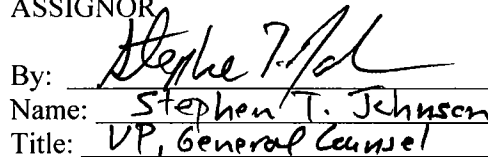 ASSIGNOR
By: Stephen T. Johnson
Name: Stephen T. Johnson
Title: VP, General Counsel